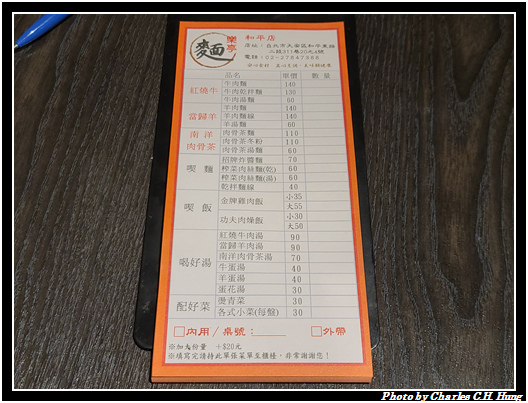 麵 樂亭
和平店
店址：台北市大安區和平東路
二段311巷20之4號
電話：02-27847388
品名 單價 數量
紅燒牛
牛肉麵 140
牛肉乾拌麵 130
牛肉湯麵 60
富歸羊
羊肉麵 140
羊肉麵線 140
羊湯麵 60
南洋肉骨茶
肉骨茶麵 110
肉骨茶冬粉 110
肉骨茶湯麵 60
喫麵
招牌炸醬麵 70
榨菜肉絲麵(乾) 60
榨菜肉絲麵(湯) 60
乾拌麵線 40
喫飯
金牌雞肉飯 小35
大55
功夫肉燥飯 小30
大50
喝好湯
紅燒牛肉湯 90
富歸羊肉湯 90
南洋肉骨茶湯 70
牛蛋湯 40
羊蛋湯 40
蛋花湯 30
配好菜
燙青菜 30
各式小菜(每盤) 30
□內用／桌號：_____ □外帶
※加大份量 +$20元
※填寫完請持此單張菜單至櫃檯，非常謝謝您！
Photo by Charles C.H. Hung